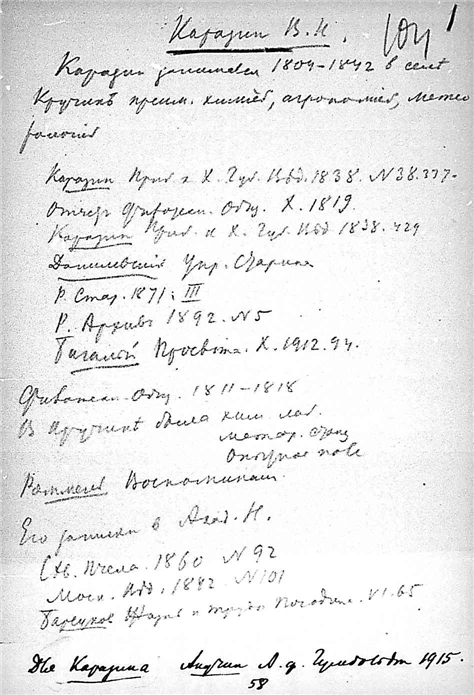 1
Каразин В. Н.
Каразин занимался 1804-1842 в селѣ
Кручикъ преим. химіей, агрономіей, метео
рологіей
Каразин Приб. к Х. Губ. Вѣд. 1838. N 38. 377-
Отчеръ Филотехн. Общ. Х. 1819.
Каразин Приб. к Х. Губ. Вѣд. 1838. 429
Данилевскій Укр. Старина
Р. Стар. 1871. III
Р. Архивъ 1892. N5
Багалѣй Просвѣта. Х. 1912. 94.
Филотехн. Общ. 1811-1818
В Кручикѣ была хим. лаб.
метеор. станц
опытное поле
Роммель Воспоминан.
Его записки в Акад. Н.
Сѣв. Пчела. 1860 N 92
Моск. Вѣд. 1882. N 101
Барсуков Жизнь и труды Погодина. VI. 65
Две Каразина Анучин А. д. 1915.
58